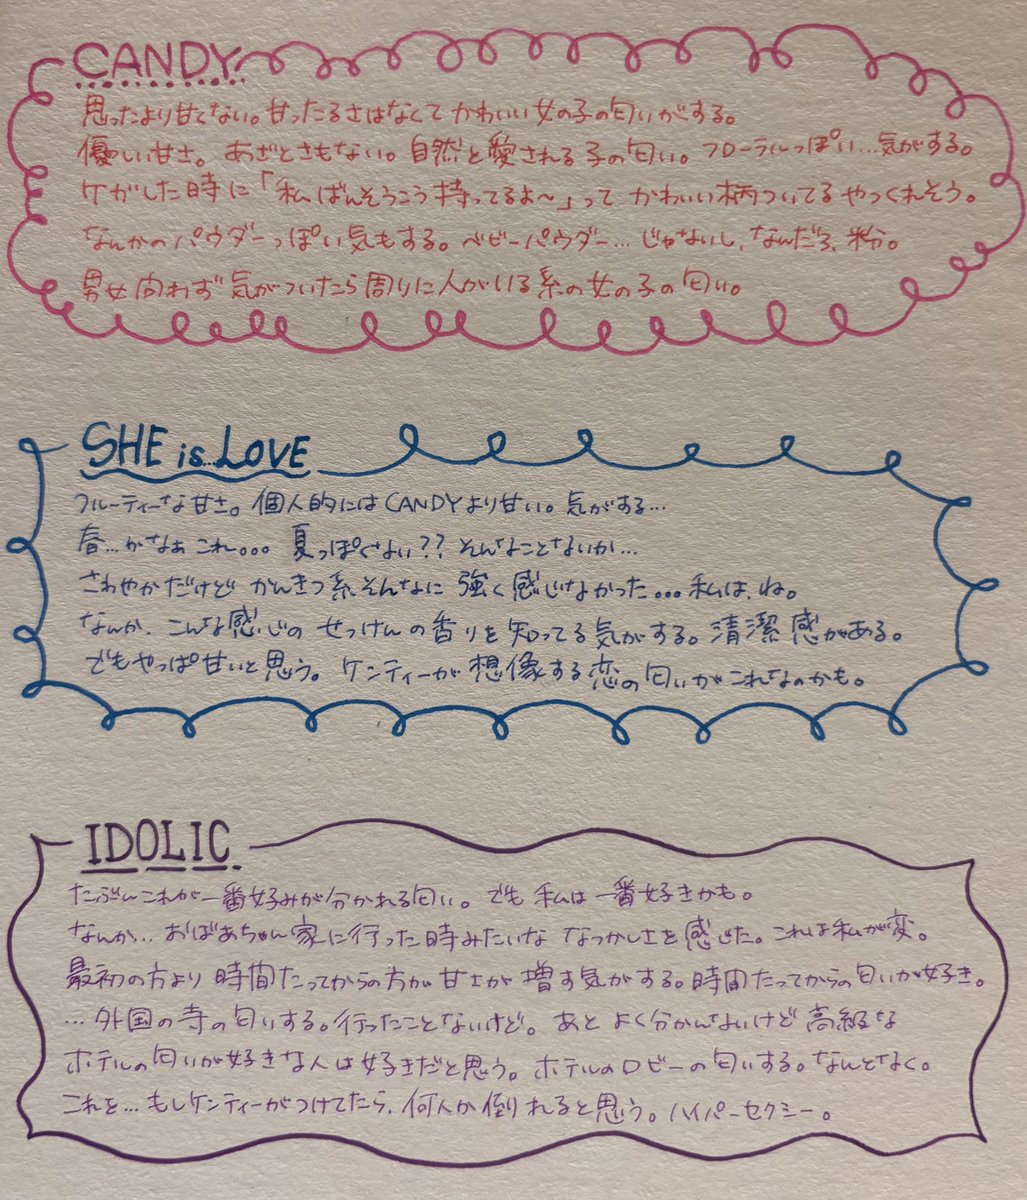 CANDY
思ったより甘くない。甘ったるさはなくてかわいい女の子の匂いがする。
優しい甘さ。あざとさもない。自然と愛される子の匂い。フローラルっぽい…気がする。
ケガした時に「私ばんそうこう持ってるよ～」ってかわいい柄ついてるやつくれそう。
なんかのパウダーっぽい気もする。ベビーパウダー…じゃないし、なんだろ、粉。
男女問わず気がついたら周りに人がいる系の女の子の匂い。
SHE is LOVE
フルーティーな甘さ。個人的にはCANDYより甘い。気がする…
春…かなぁこれ。。。夏っぽくない??そんなことないか…
さわやかだけどかんきつ系そんなに強く感じなかった。。。私は、ね。
なんか、こんな感じのせっけんの香りを知ってる気がする。清潔感がある。
でもやっぱ甘いと思う。ケンティーが想像する恋の匂いがこれなのかも。
IDOLIC
たぶんこれが一番好みが分かれる匂い。でも私は一番好きかも。
なんか…おばあちゃん家に行った時みたいななつかしさを感じた。これは私が変。
最初の方より時間たってからの方が甘さが増す気がする。時間たってからの匂いが好き。
…外国の寺の匂いする。行ったことないけど。あとよく分かんないけど高級な
ホテルの匂いが好きな人は好きだと思う。ホテルのロビーの匂いする。なんとなく。
これを…もしケンティーがつけてたら、何人か倒れると思う。ハイパーセクシー。